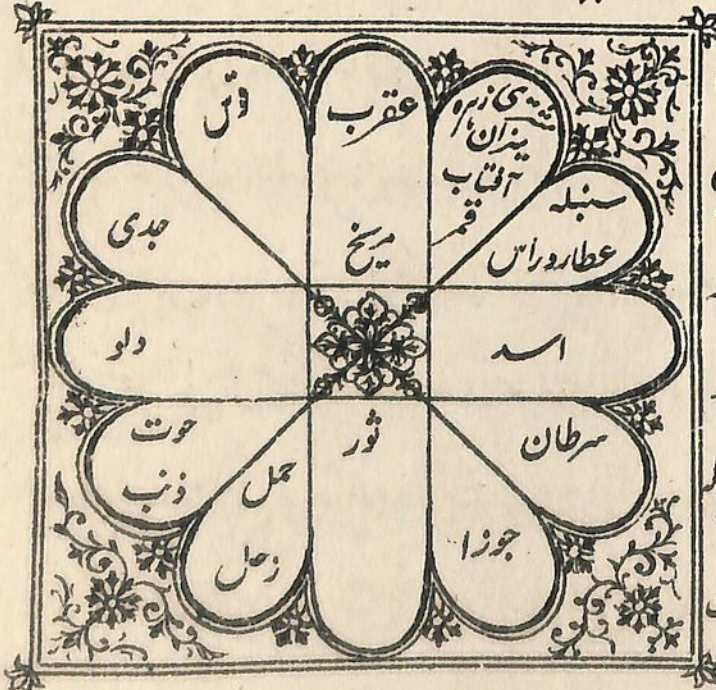 عقرب
مریخ
زهره
میزان
آفتاب
قمر
سنبله
عطارد راس
اسد
سرطان
جوزا
ثور
حمل
زحل
حوت
ذنب
دلو
جدی
قوس